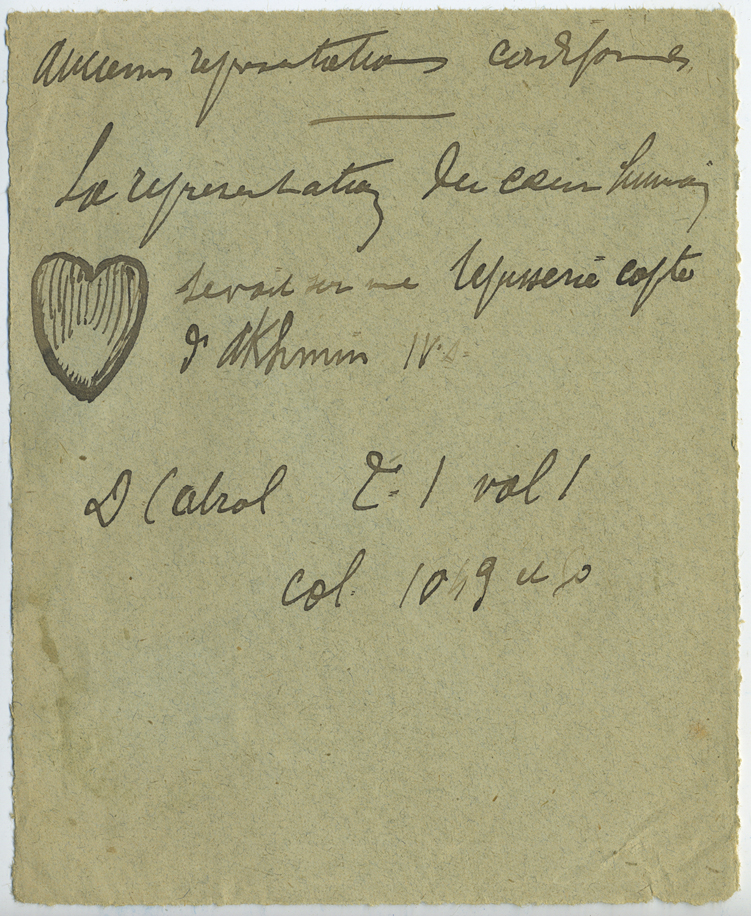 Anciennes représentations cordiformes
La représentation du cœur humain
se voit sur une tapisserie copte
d'Akhmin IV s.
D Cabrol T. 1 vol 1
col. 1049 et 50